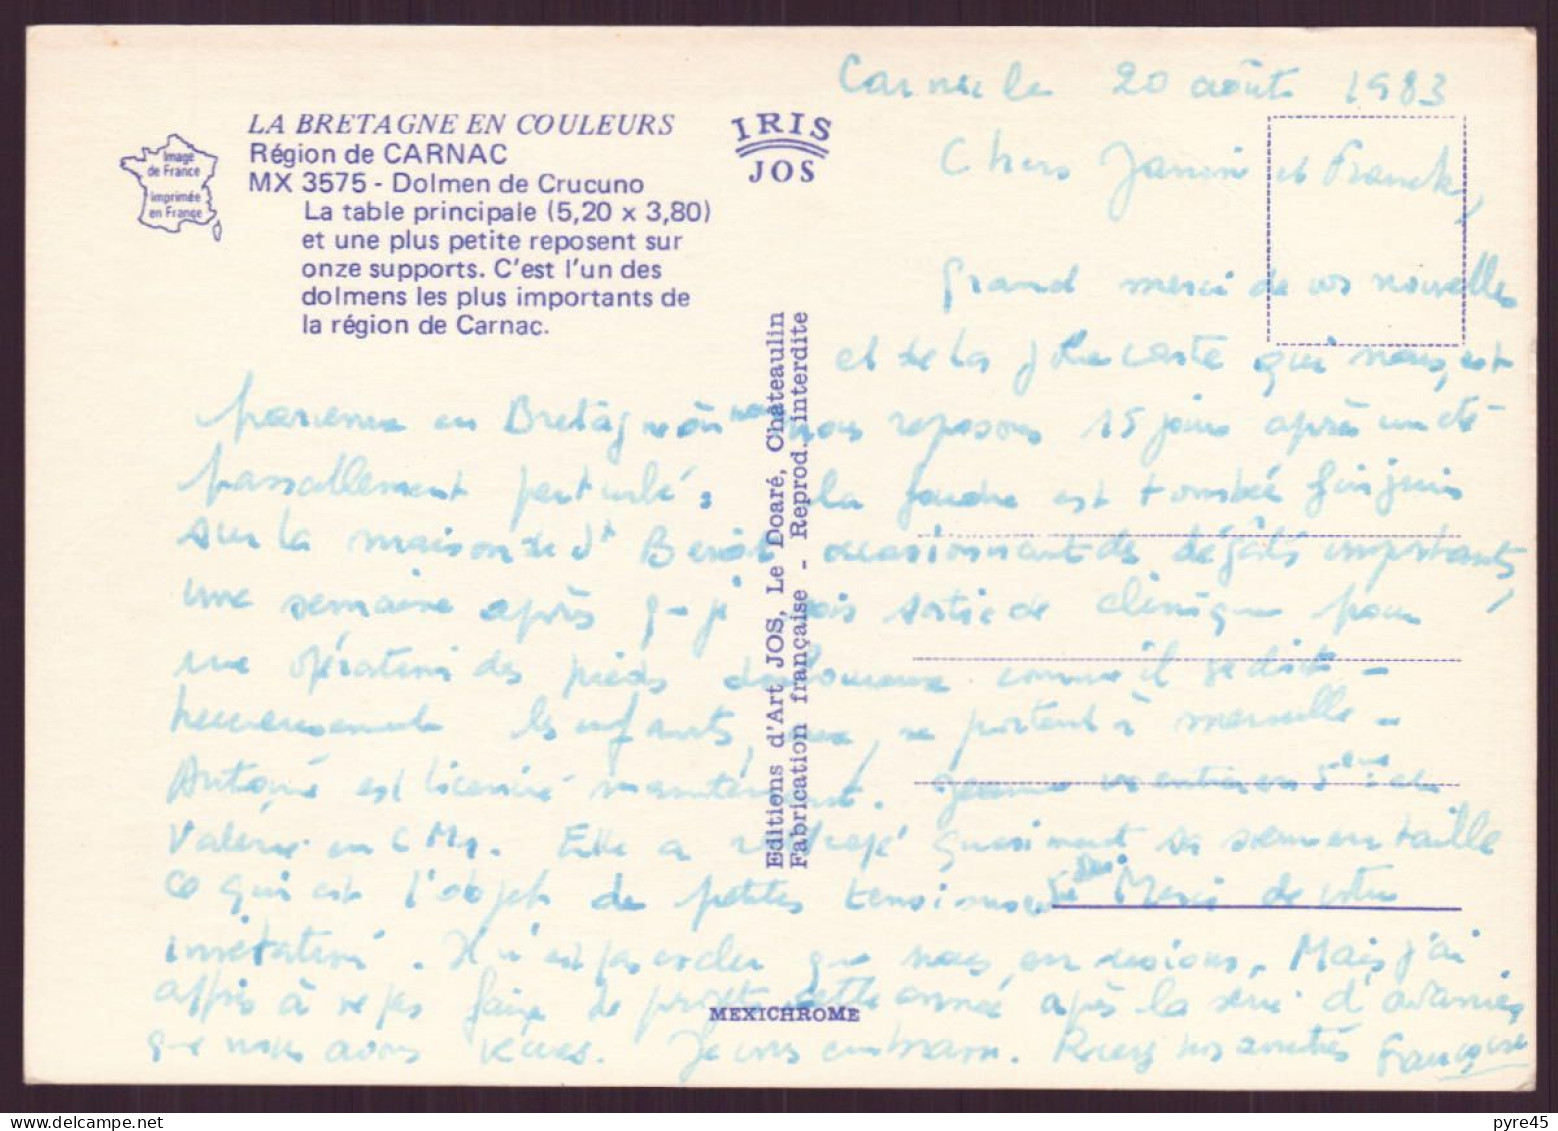 Carnac le 20 août 1983
Chers Janin et Franck,
LA BRETAGNE EN COULEURS
Région de CARNAC
MX 3575 - Dolmen de Crucuno
La table principale (5,20 x 3,80)
et une plus petite reposent sur
onze supports. C'est l'un des
dolmens les plus importants de
la région de Carnac.
Image
de France
imprimée
en France
IRIS
JOS
Editions d'Art JOS, Le Doaré, Châteaulin
Fabrication française - Reprod. interdite
Grand merci de vos nouvelles
et de la jolie carte qui nous est
parvenue en Bretagne où nous nous reposons 15 jours après un été
passablement perturbé : la foudre est tombée fin juin
sur la maison de St occasionnant des dégâts importants,
une semaine après q. je sortie de clinique pour
une opération des pieds douloureuse comme il se doit -
heureusement les enfants, eux, se portent à merveille -
Antoine est licencié maintenant. entre en 5ème et
Valérie en CM1. Elle a quasiment sa sœur en taille
ce qui est l'objet de petites tensions Merci de votre
invitation. Il n'est pas exclu que nous en usions. Mais j'ai
appris à ne pas faire de projets cette année après la série d'avanies
que nous avons vécues. Je vous embrasse. Recevez nos amitiés Françoise
MEXICHROME
pyre45